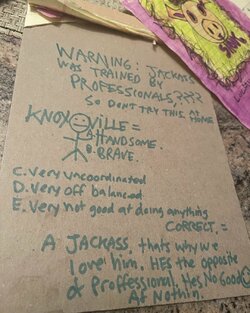 WARNING: JACKASS
WAS TRAINED BY
PROFESSIONALS,???
SO DONT TRY THIS AT HOME
KNOXVILLE =
A. HANDSOME.
B. BRAVE.
C. very uncoordinated
D. Very off balanced
E. Very not good at doing anything
CORRECT. =
A JACKASS, thats why we
love him. HES the opposite
of Proffessional. Hes No Good
At Nothin.